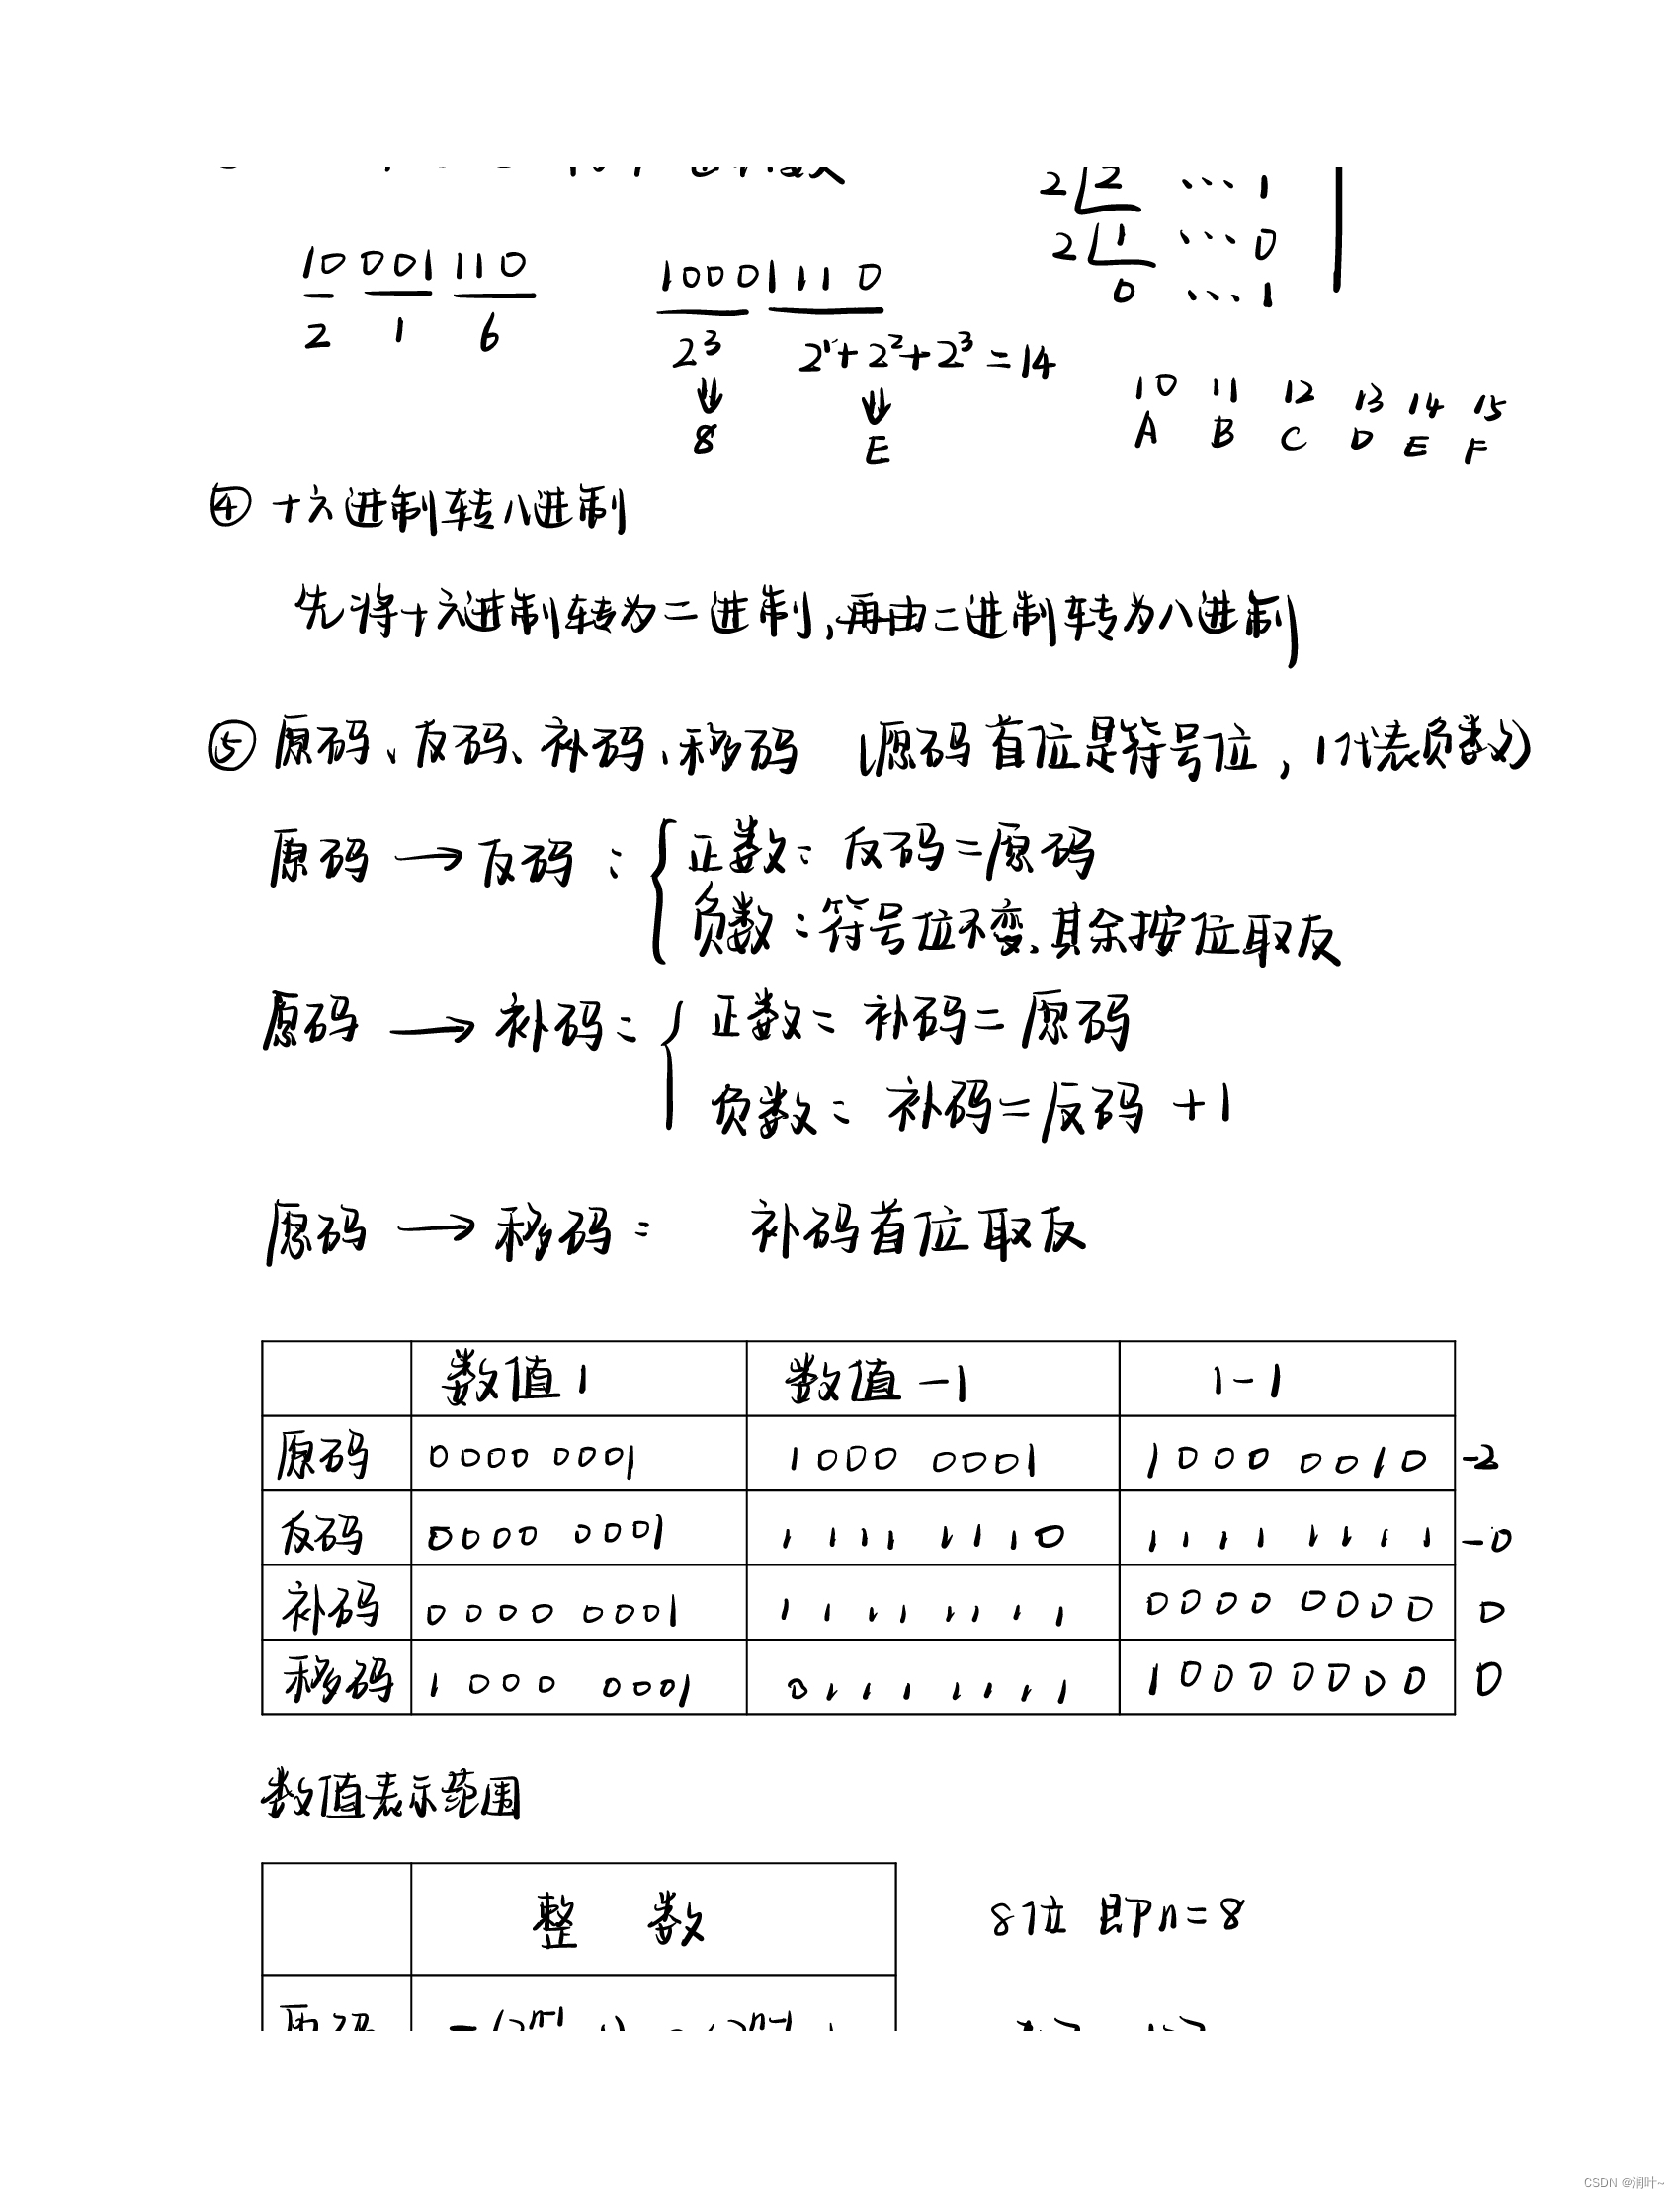 2 2 … 1
2 1 … 0
0 … 1
10 001 110
2 1 6
1000 1110
2³ 2¹+2²+2³=14
⇓ ⇓
8 E
10 11 12 13 14 15
A B C D E F
④ 十六进制转八进制
先将十六进制转为二进制,再由二进制转为八进制
⑤ 原码、反码、补码、移码 (原码首位是符号位,1代表负数)
原码 → 反码: 正数: 反码=原码
负数:符号位不变、其余按位取反
原码 → 补码: 正数: 补码=原码
负数: 补码=反码+1
原码 → 移码: 补码首位取反
数值1 数值-1 1-1
原码 0000 0001 1000 0001 1000 0010 -2
反码 0000 0001 1111 1110 1111 1111 -0
补码 0000 0001 1111 1111 0000 0000 0
移码 1000 0001 0111 1111 10000000 0
数值表示范围
整 数
8位 即n=8
原码
CSDN @润叶~